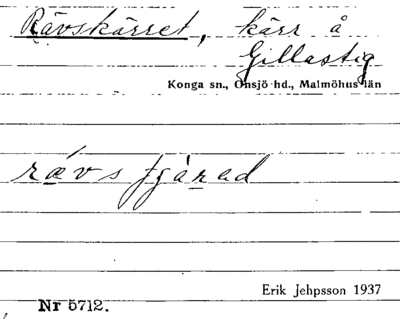 Rävskärret, kärr å
Gillastig
Konga sn., Onsjö hd., Malmöhus län
Erik Jehpsson 1937
Nr 5712.